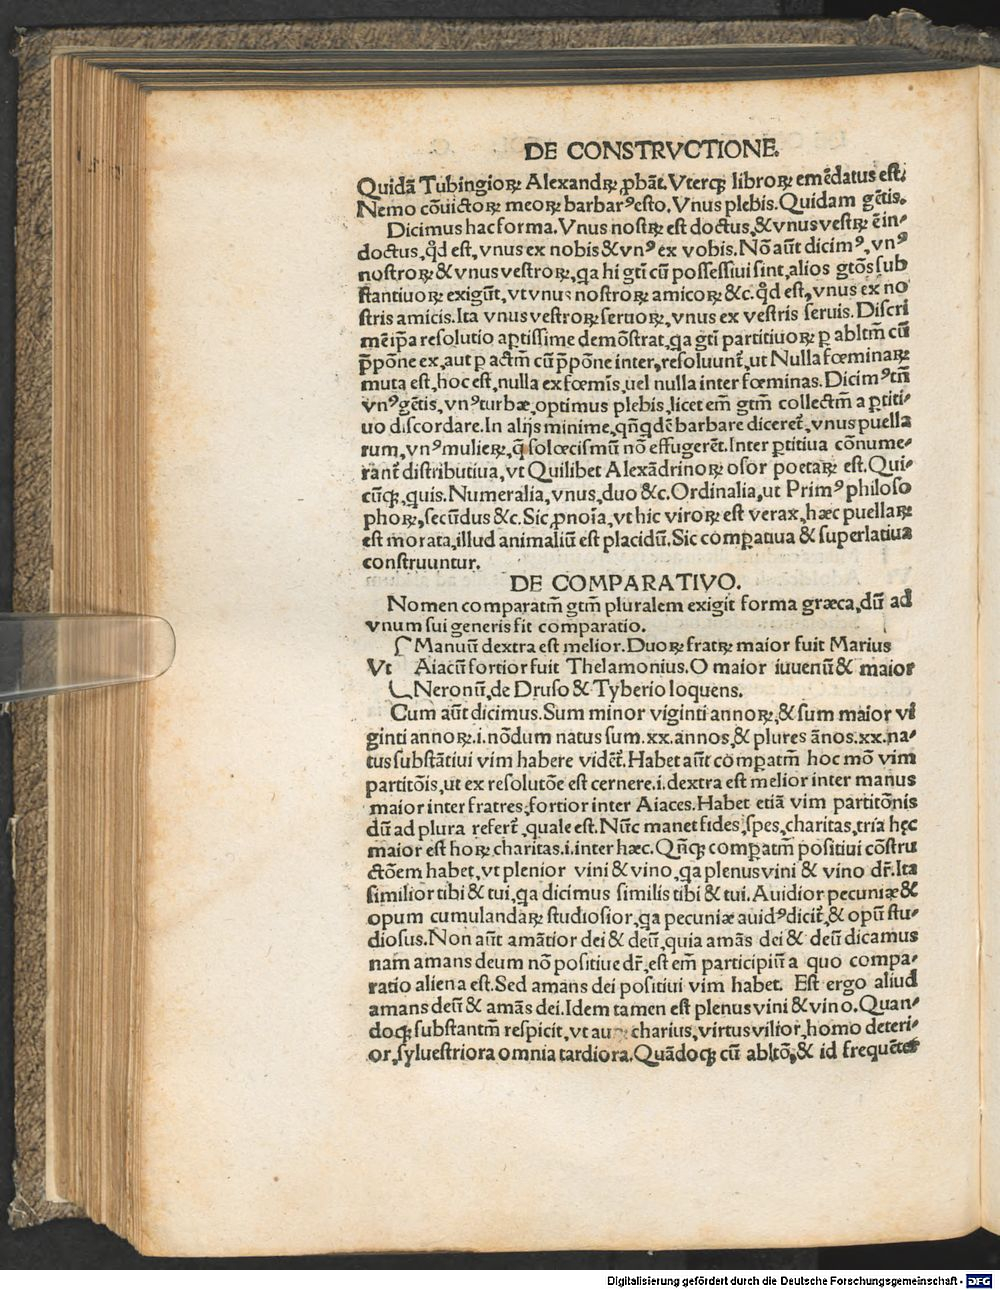 DE CONSTRVCTIONE.
Quidā Tubingioꝝ Alexandꝝ ꝓbāt. Vterqꝫ libroꝝ emēdatus est.
Nemo cōuictoꝝ meoꝝ barbarꝰ esto. Vnus plebis. Quidam gētis.
Dicimus hac forma. Vnus nostꝝ est doctus, & vnus vestꝝ ē in⸗
doctus, qđ est, vnus ex nobis & vnꝰ ex vobis. Nō aūt dicimꝰ, vnꝰ
nostroꝝ & vnus vestroꝝ, qa hi gtī cū possessiui sint, alios gtōs sub
stantiuoꝝ exigūt, vt vnus nostroꝝ amicoꝝ &c. qđ est, vnus ex no
stris amicis. Ita vnus vestroꝝ seruoꝝ, vnus ex vestris seruis. Discri
mē ip̄a resolutio aptissime demōstrat, qa gtī partitiuoꝝ ꝑ abltm̄ cū
p̄pōne ex, aut ꝑ actm̄ cū p̄pōne inter, resoluunt̄, ut Nulla fœminaꝝ
muta est, hoc est, nulla ex fœmīs, uel nulla inter fœminas. Dicimꝰ tn̄
vnꝰ gētis, vnꝰ turbæ, optimus plebis, licet em̄ gtm̄ collectm̄ a ꝑtiti⸗
uo discordare. In alijs minime, qn̄qdē barbare diceret̄, vnus puella
rum, vnꝰ mulieꝝ, q̄ solœcismū nō effugerēt. Inter ꝑtitiua cōnume⸗
rant̄ distributiua, vt Quilibet Alexādrinoꝝ osor poetaꝝ est. Qui⸗
cūqꝫ, quis. Numeralia, vnus, duo &c. Ordinalia, ut Primꝰ philoso
phoꝝ, secūdus &c. Sic ꝓnoīa, vt hic viroꝝ est verax, hæc puellaꝝ
est morata, illud animaliū est placidū. Sic comꝑatiua & superlatiua
construuntur.
DE COMPARATIVO.
Nomen comparatm̄ gtm̄ pluralem exigit forma græca, dū ad
vnum sui generis fit comparatio.
Manuū dextra est melior. Duoꝝ fratꝝ maior fuit Marius
Vt Aiacū fortior fuit Thelamonius. O maior iuuenū & maior
Neronū, de Druso & Tyberio loquens.
Cum aūt dicimus. Sum minor viginti annoꝝ, & sum maior vi
ginti annoꝝ. i. nōdum natus sum. xx. annos, & plures ānos. xx. na⸗
tus substātiui vim habere vidēt̄. Habet aūt comꝑatm̄ hoc mō vim
partitōis, ut ex resolutōe est cernere. i. dextra est melior inter manus
maior inter fratres, fortior inter Aiaces. Habet etiā vim partitōnis
dū ad plura refert̄, quale est. Nūc manet fides, spes, charitas, tria hęc
maior est hoꝝ charitas. i. inter hæc. Qn̄qꝫ comꝑatm̄ positiui cōstru
ctōem habet, vt plenior vini & vino, qa plenus vini & vino dr̄. Ita
similior tibi & tui, qa dicimus similis tibi & tui. Auidior pecuniæ &
opum cumulandaꝝ studiosior, qa pecuniæ auidꝰ dicit̄, & opū stu⸗
diosus. Non aūt amātior dei & deū, quia amās dei & deū dicamus
nam amans deum nō positiue dr̄, est em̄ participiū a quo compa⸗
ratio aliena est. Sed amans dei positiui vim habet. Est ergo aliud
amans deū & amās dei. Idem tamen est plenus vini & vino. Quan⸗
doqꝫ substantm̄ respicit, vt charius, virtus vilior, homo deteri⸗
or, syluestriora omnia tardiora. Quādoqꝫ cū abltō, & id frequēter
Digitalisierung gefördert durch die Deutsche Forschungsgemeinschaft - DFG